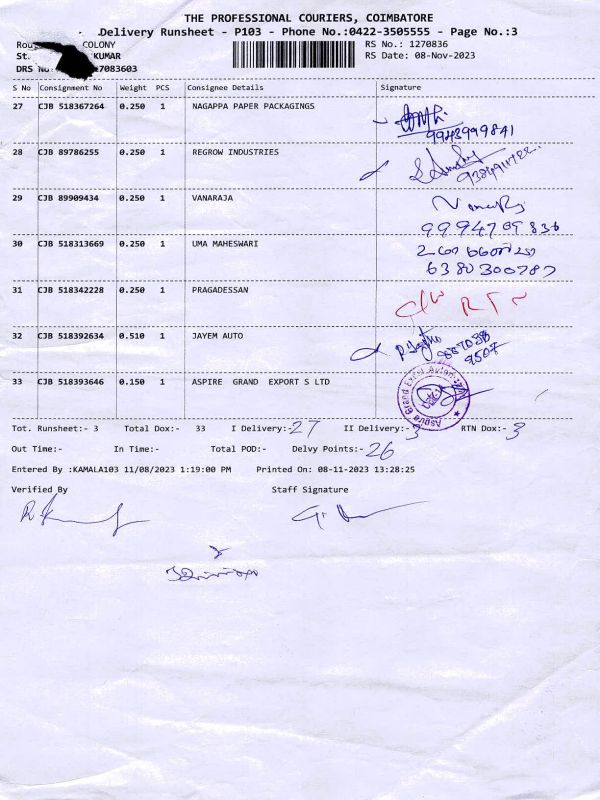 THE PROFESSIONAL COURIERS, COIMBATORE
Delivery Runsheet - P103 - Phone No.:0422-3505555 - Page No.:3
COLONY
RS No.: 1270836
KUMAR
RS Date: 08-Nov-2023
DRS
S No Consignment No Weight PCS Consignee Details Signature
27 CJB 518367264 0.250 1 NAGAPPA PAPER PACKAGINGS
9943999841
28 CJB 89786255 0.250 1 REGROW INDUSTRIES
29 CJB 89909434 0.250 1 VANARAJA
9994709836
30 CJB 518313669 0.250 1 UMA MAHESWARI
6380300787
31 CJB 518342228 0.250 1 PRAGADESSAN
RTN
32 CJB 518392634 0.510 1 JAYEM AUTO
33 CJB 518393646 0.150 1 ASPIRE GRAND EXPORT S LTD
Tot. Runsheet:- 3 Total Dox:- 33 I Delivery:- 27 II Delivery:- 3 RTN Dox:- 3
Out Time:- In Time:- Total POD:- Delvy Points:- 26
Entered By :KAMALA103 11/08/2023 1:19:00 PM Printed On: 08-11-2023 13:28:25
Verified By Staff Signature